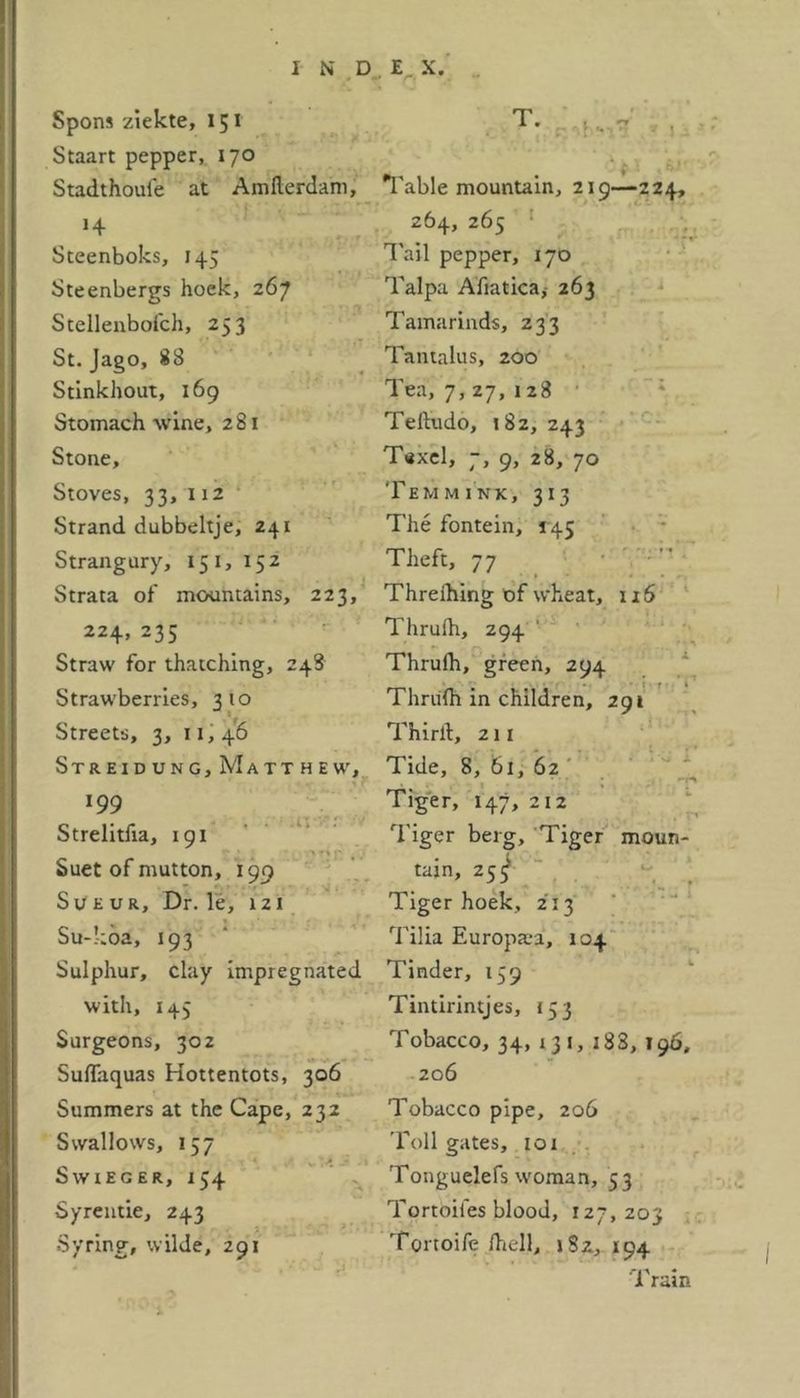 INDEX.
Spons ziekte, 151
Staart pepper, 170
Stadthouſe at Amſterdam,
14
Steenboks, 145
Steenbergs hoek, 267
Stellenboſch, 253
St. Jago, 88
Stinkhout, 169
Stomach wine, 281
Stone,
Stoves, 33, 112
Strand dubbeltje, 241
Strangury, 151, 152
Strata of mountains, 223,
224, 235
Straw for thatching, 248
Strawberries, 310
Streets, 3, 11, 46
STREIDUNG, MATTHEW,
199
Strelitſia, 191
Suet of mutton, 199
SUEUR, Dr. le, 121
Su-koa, 193
Sulphur, clay impregnated
with, 145
Surgeons, 302
Suſſaquas Hottentots, 306
Summers at the Cape, 232
Swallows, 157
SWIEGER, 154
Syrentie, 243
Syring, wilde, 291
T.
Table mountain, 219—224,
264, 265
Tail pepper, 170
Talpa Aſiatica, 263
Tamarinds, 233
Tantalus, 200
Tea, 7, 27, 128
Teſtudo, 182, 243
Texel, 7, 9, 28, 70
TEMMINK, 313
The fontein, 145
Theft, 77
Threſhing of wheat, 116
Thruſh, 294
Thruſh, green, 294
Thruſh in children, 291
Thirſt, 211
Tide, 8, 61, 62
Tiger, 147, 212
Tiger berg, Tiger moun-
tain, 255
Tiger hoek, 213
Tilia Europæa, 104
Tinder, 159
Tintirintjes, 153
Tobacco, 34, 131, 188, 196,
206
Tobacco pipe, 206
Toll gates, 101
Tongueleſs woman, 53
Tortoiſes blood, 127, 203
Tortoiſe ſhell, 182, 194
Train